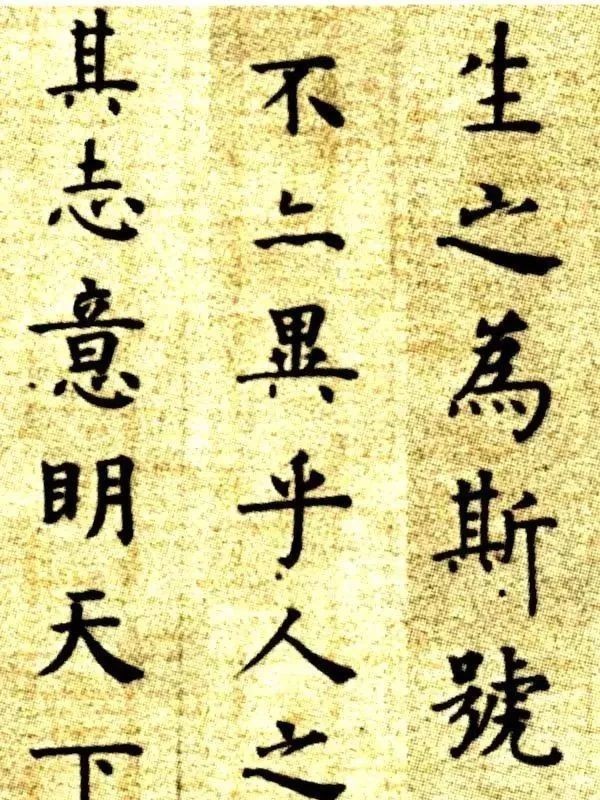 生之為斯號
不亦異乎人之
其志意明天下